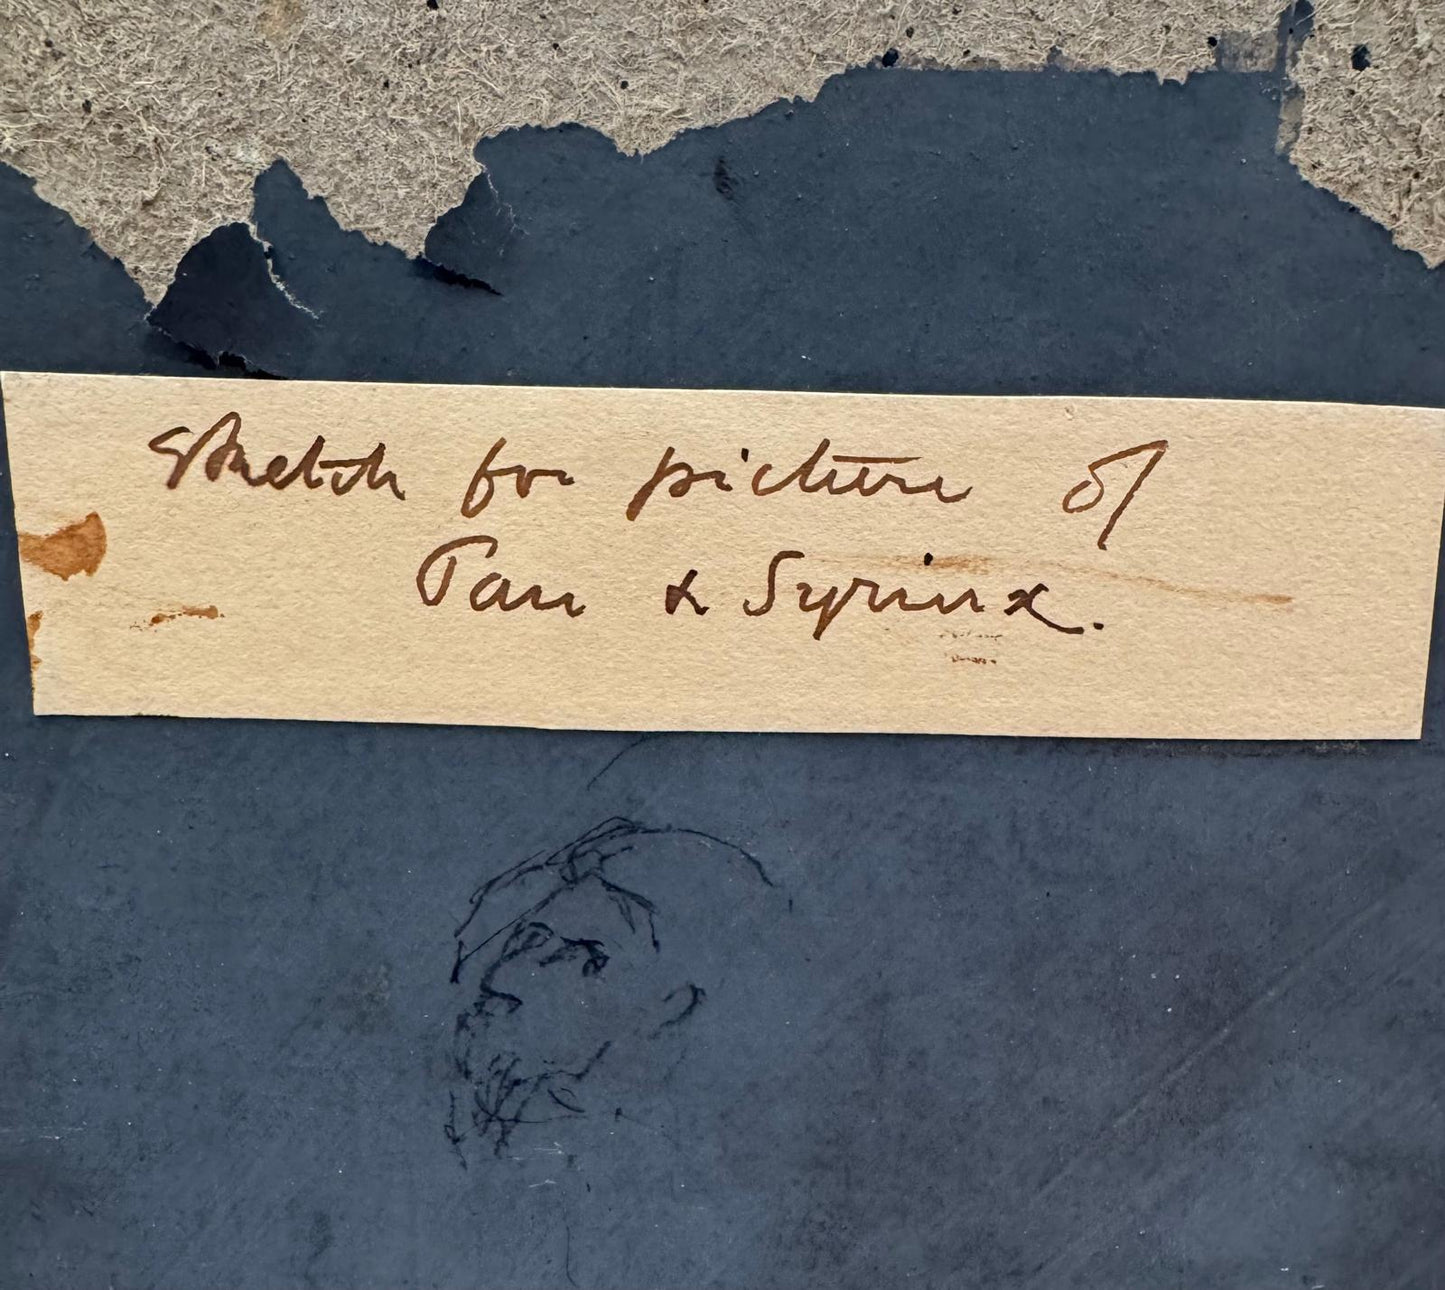 Sketch for picture of
Pan & Syrinx.